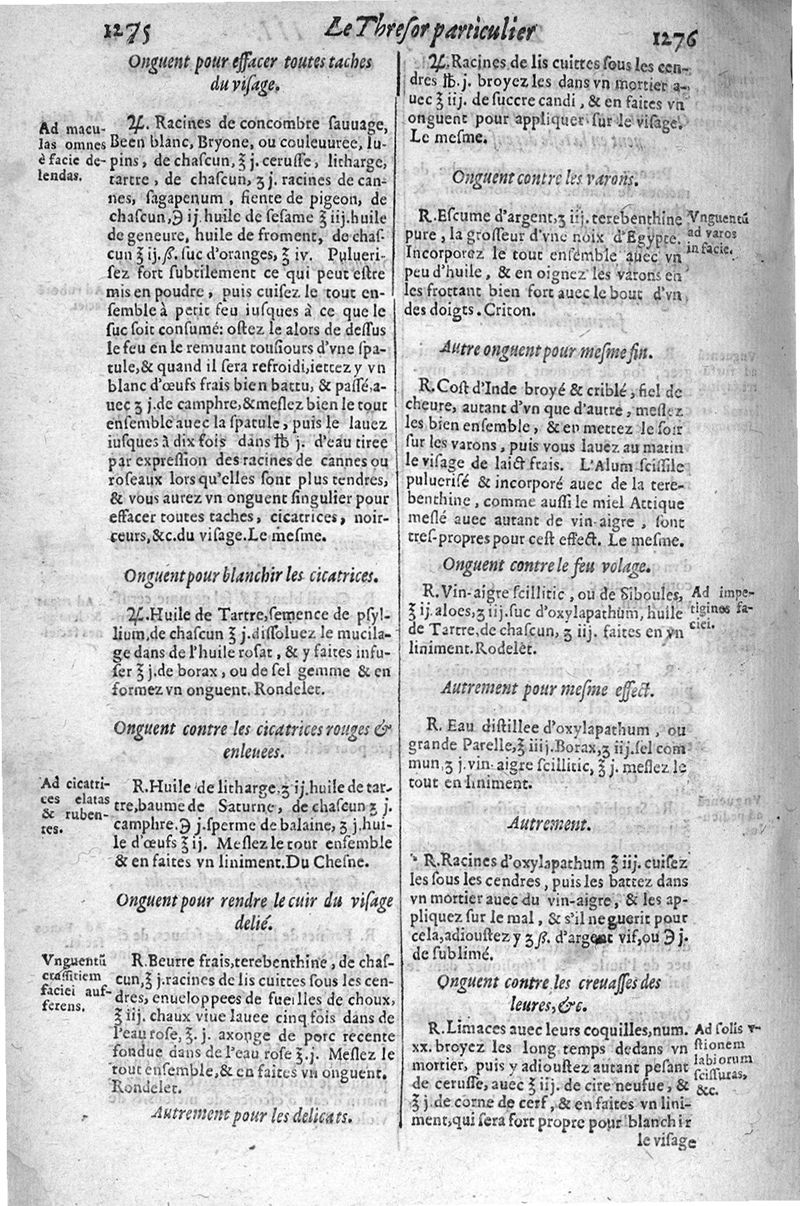 1275
Le Thresor particulier
1276
Onguent pour effacer toutes taches
du visage.
Ad macu-
las omnes
è facie de-
lendas.
♃. Racines de concombre sauuage,
Been blanc, Bryone, ou couleuuree, lu-
pins, de chascun, ℥ j. cerusse, litharge,
tartre, de chascun, ʒ j. racines de can-
nes, sagapenum, fiente de pigeon, de
chascun, ℈ ij. huile de sesame ℥ iij. huile
de geneure, huile de froment, de chas-
cun ℥ ij. ß. suc d'oranges, ℥ iv. Pulueri-
sez fort subtilement ce qui peut estre
mis en poudre, puis cuisez le tout en-
semble à petit feu iusques à ce que le
suc soit consumé: ostez le alors de dessus
le feu en le remuant tousiours d'vne spa-
tule, & quand il sera refroidi, iettez y vn
blanc d'œufs frais bien battu, & passé, a-
uec ʒ j. de camphre, & meslez bien le tout
ensemble auec la spatule, puis le lauez
iusques à dix fois dans ℔ j. d'eau tiree
par expression des racines de cannes ou
roseaux lors qu'elles sont plus tendres,
& vous aurez vn onguent singulier pour
effacer toutes taches, cicatrices, noir-
ceurs, &c. du visage. Le mesme.
Onguent pour blanchir les cicatrices.
♃. Huile de Tartre, semence de psyl-
lium, de chascun ℥ j. dissoluez le mucila-
ge dans de l'huile rosat, & y faites infu-
ser ℥ j. de borax, ou de sel gemme & en
formez vn onguent. Rondelet.
Onguent contre les cicatrices rouges &
enleuees.
Ad cicatri-
ces elatas
& ruben-
tes.
R. Huile de litharge, ʒ ij. huile de tar-
tre, baume de Saturne, de chascun ʒ j.
camphre, ℈ j. sperme de balaine, ʒ j. hui-
le d'œufs ℥ ij. Meslez le tout ensemble
& en faites vn liniment. Du Chesne.
Onguent pour rendre le cuir du visage
delié.
Vnguentū
crassitiem
faciei auf-
ferens.
R. Beurre frais, terebenthine, de chas-
cun, ℥ j. racines de lis cuittes sous les cen-
dres, enueloppees de fueilles de choux,
℥ iij. chaux viue lauee cinq fois dans de
l'eau rose, ℥. j. axonge de porc recente
fondue dans de l'eau rose ℥. j. Meslez le
tout ensemble, & en faites vn onguent.
Rondelet.
Autrement pour les delicats.
♃. Racines de lis cuittes sous les cen-
dres ℔. j. broyez les dans vn mortier a-
uec ℥ iij. de succre candi, & en faites vn
onguent pour appliquer sur le visage.
Le mesme.
Onguent contre les varons.
Vnguentū
ad varos
in facie.
R. Escume d'argent, ʒ iij. terebenthine
pure, la grosseur d'vne noix d'Egypte.
Incorporez le tout ensemble auec vn
peu d'huile, & en oignez les varons en
les frottant bien fort auec le bout d'vn
des doigts. Criton.
Autre onguent pour mesme fin.
R. Cost d'Inde broyé & criblé, fiel de
cheure, autant d'vn que d'autre, meslez
les bien ensemble, & en mettez le soir
sur les varons, puis vous lauez au matin
le visage de laict frais. L'Alum scissile
puluerisé & incorporé auec de la tere-
benthine, comme aussi le miel Attique
meslé auec autant de vin-aigre, sont
tres-propres pour cest effect. Le mesme.
Onguent contre le feu volage.
Ad impe-
tigines fa-
ciei.
R. Vin-aigre scillitic, ou de Siboules,
℥ ij. aloes, ʒ iij. suc d'oxylapathum, huile
de Tartre, de chascun, ʒ iij. faites en vn
liniment. Rodelet.
Autrement pour mesme effect.
R. Eau distillee d'oxylapathum, ou
grande Parelle, ℥ iiij. Borax, ʒ ij. sel com
mun, ʒ j. vin-aigre scillitic, ℥ j. meslez le
tout en liniment.
Autrement.
R. Racines d'oxylapathum ℥ iij. cuisez
les sous les cendres, puis les battez dans
vn mortier auec du vin-aigre, & les ap-
pliquez sur le mal, & s'il ne guerit pour
cela, adioustez y ʒ ß. d'argent vif, ou ℈ j.
de sublimé.
Onguent contre les creuasses des
leures, &c.
Ad solis v-
stionem
labiorum
scissuras,
&c.
R. Limaces auec leurs coquilles, num.
xx. broyez les long temps dedans vn
mortier, puis y adioustez autant pesant
de cerusse, auec ℥ iij. de cire neufue, &
℥ j. de corne de cerf, & en faites vn lini-
ment, qui sera fort propre pour blanchir
le visage